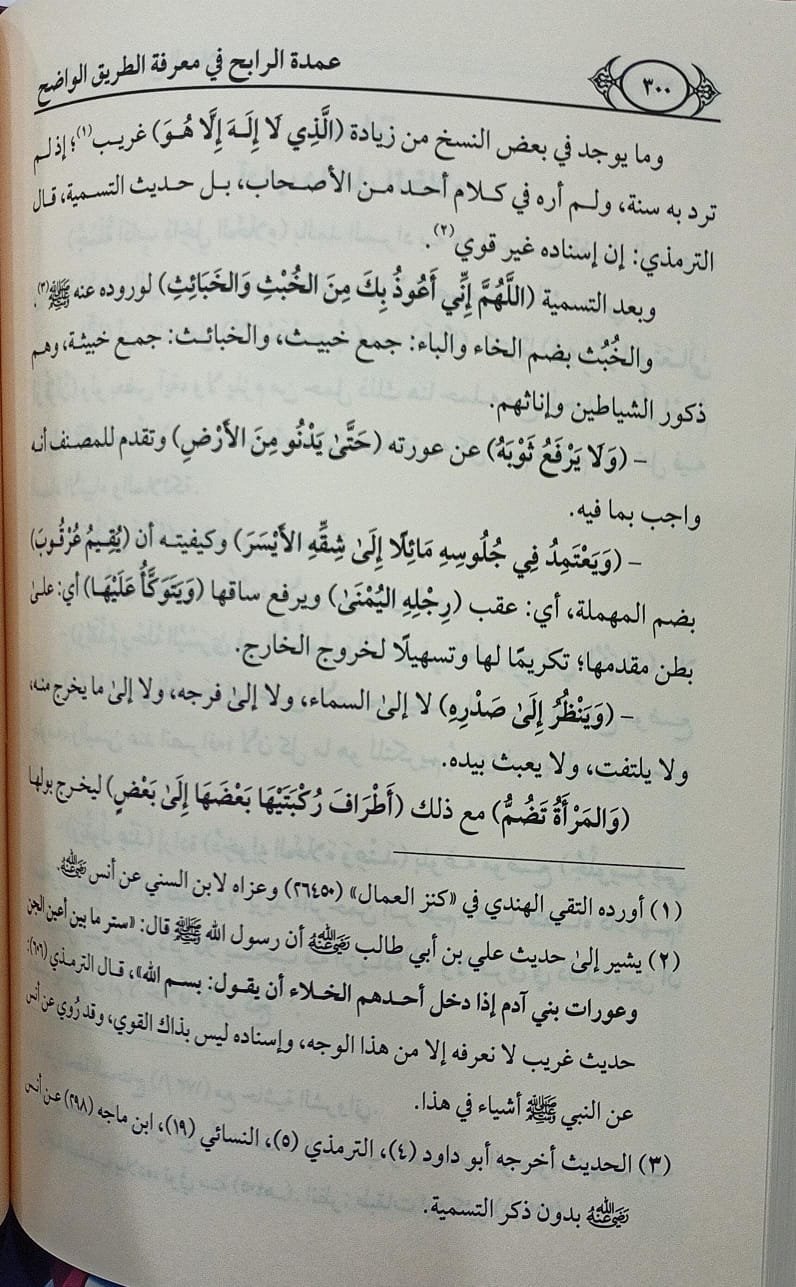 عمدة الرابح في معرفة الطريق الواضح
٣٠٠
وما يوجد في بعض النسخ من زيادة (الَّذِي لَا إِلَهَ إِلَّا هُوَ) غريب(١)؛ إذ لم
ترد به سنة، ولم أره في كلام أحد من الأصحاب، بل حديث التسمية، قال
الترمذي: إن إسناده غير قوي(٢).
وبعد التسمية (اللَّهُمَّ إِنِّي أَعُوذُ بِكَ مِنَ الخُبْثِ وَالخَبَائِثِ) لوروده عنه ﷺ(٣).
والخُبُث بضم الخاء والباء: جمع خبيث، والخبائث: جمع خبيثة، وهم
ذكور الشياطين وإناثهم.
– (وَلَا يَرْفَعُ ثَوْبَهُ) عن عورته (حَتَّىٰ يَدْنُو مِنَ الأَرْضِ) وتقدم للمصنف أنه
واجب بما فيه.
– (وَيَعْتَمِدُ فِي جُلُوسِهِ مَائِلًا إِلَىٰ شِقِّهِ الأَيْسَرَ) وكيفيته أن (يُقِيمُ عُرْقُوبَ)
بضم المهملة، أي: عقب (رِجْلِهِ اليُمْنَىٰ) ويرفع ساقها (وَيَتَوَكَّأُ عَلَيْهَا) أي: علىٰ
بطن مقدمها؛ تكريمًا لها وتسهيلًا لخروج الخارج.
– (وَيَنْظُرُ إِلَىٰ صَدْرِهِ) لا إلىٰ السماء، ولا إلىٰ فرجه، ولا إلىٰ ما يخرج منه،
ولا يلتفت، ولا يعبث بيده.
(وَالمَرْأَةُ تَضُمُّ) مع ذلك (أَطْرَافَ رُكْبَتَيْهَا بَعْضَهَا إِلَىٰ بَعْضٍ) ليخرج بولها
(١) أورده التقي الهندي في «كنز العمال» (٢٦٤٥٠) وعزاه لابن السني عن أنس رضي الله عنه.
(٢) يشير إلىٰ حديث علي بن أبي طالب رضي الله عنه أن رسول الله ﷺ قال: «ستر ما بين أعين الجن
وعورات بني آدم إذا دخل أحدهم الخلاء أن يقول: بسم الله»، قال الترمذي (٦٠٦):
حديث غريب لا نعرفه إلا من هذا الوجه، وإسناده ليس بذاك القوي، وقد رُوي عن أنس
عن النبي ﷺ أشياء في هذا.
(٣) الحديث أخرجه أبو داود (٤)، الترمذي (٥)، النسائي (١٩)، ابن ماجه (٢٩٨) عن أنس
رضي الله عنه بدون ذكر التسمية.